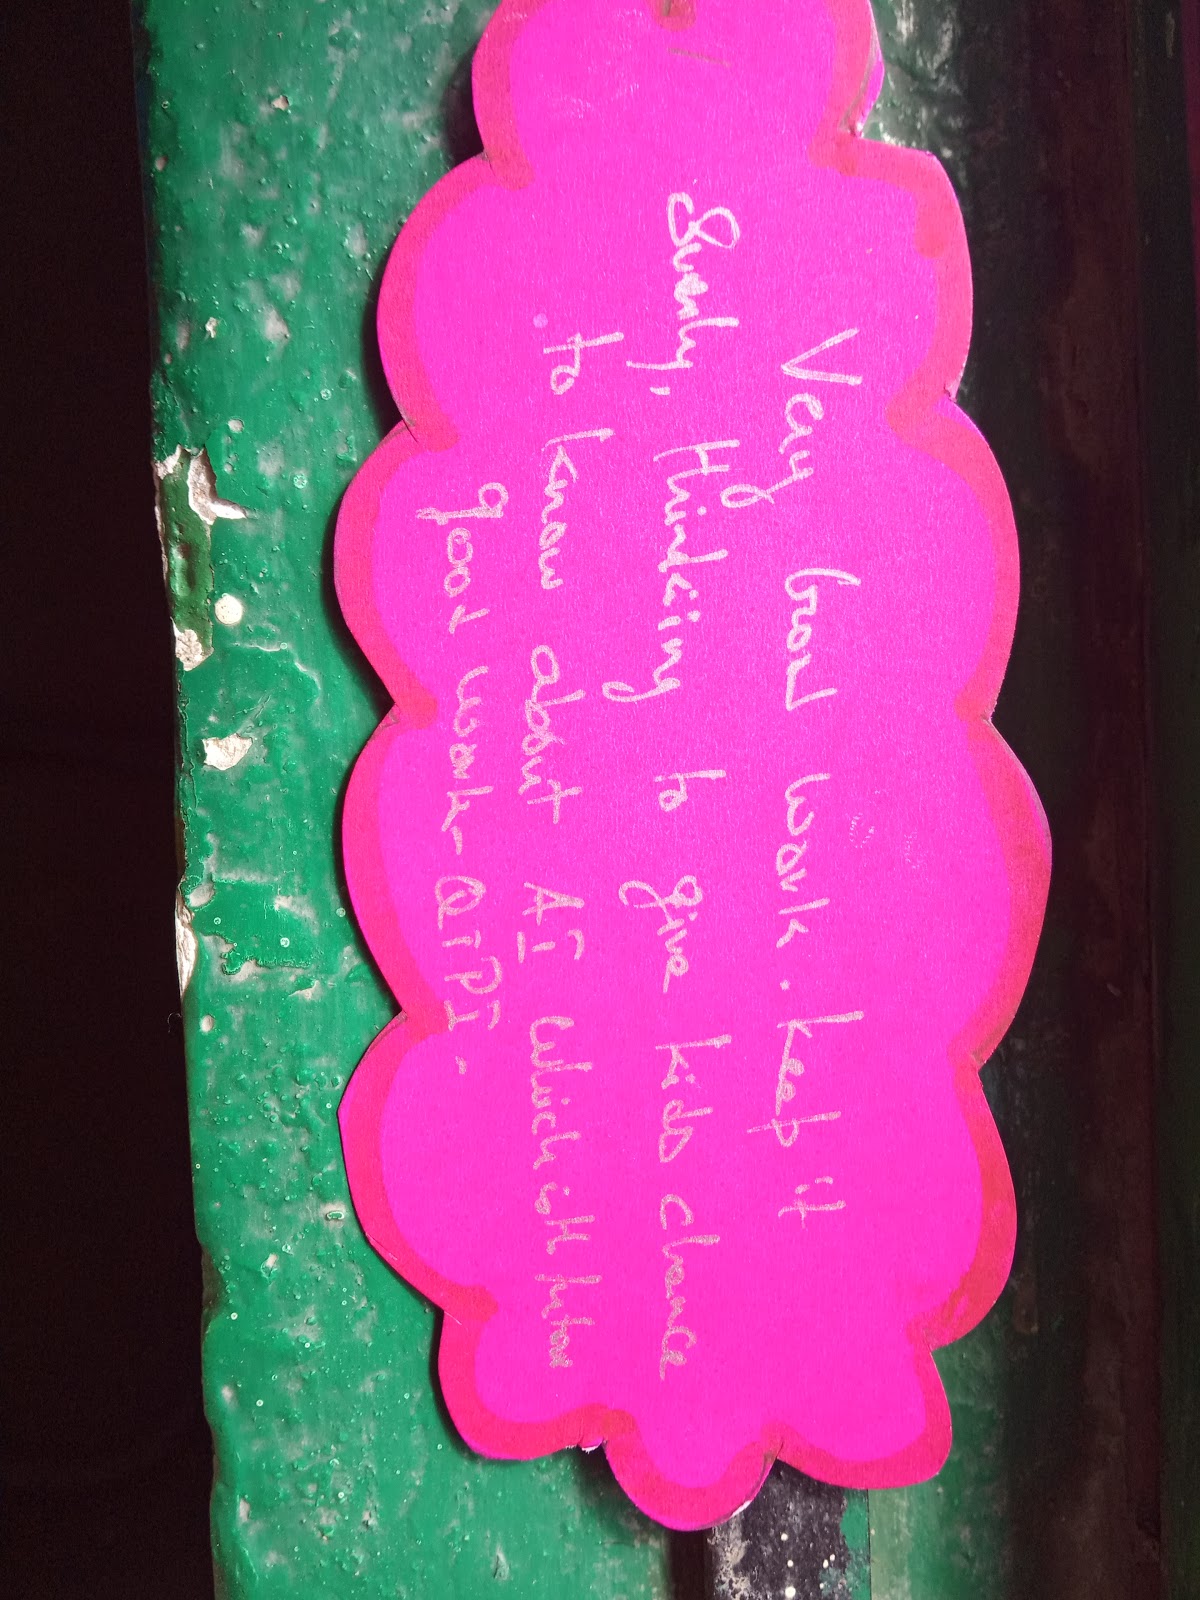 Very Good work. Keep it
thinking to give kids chance
to know about AI which is
good work